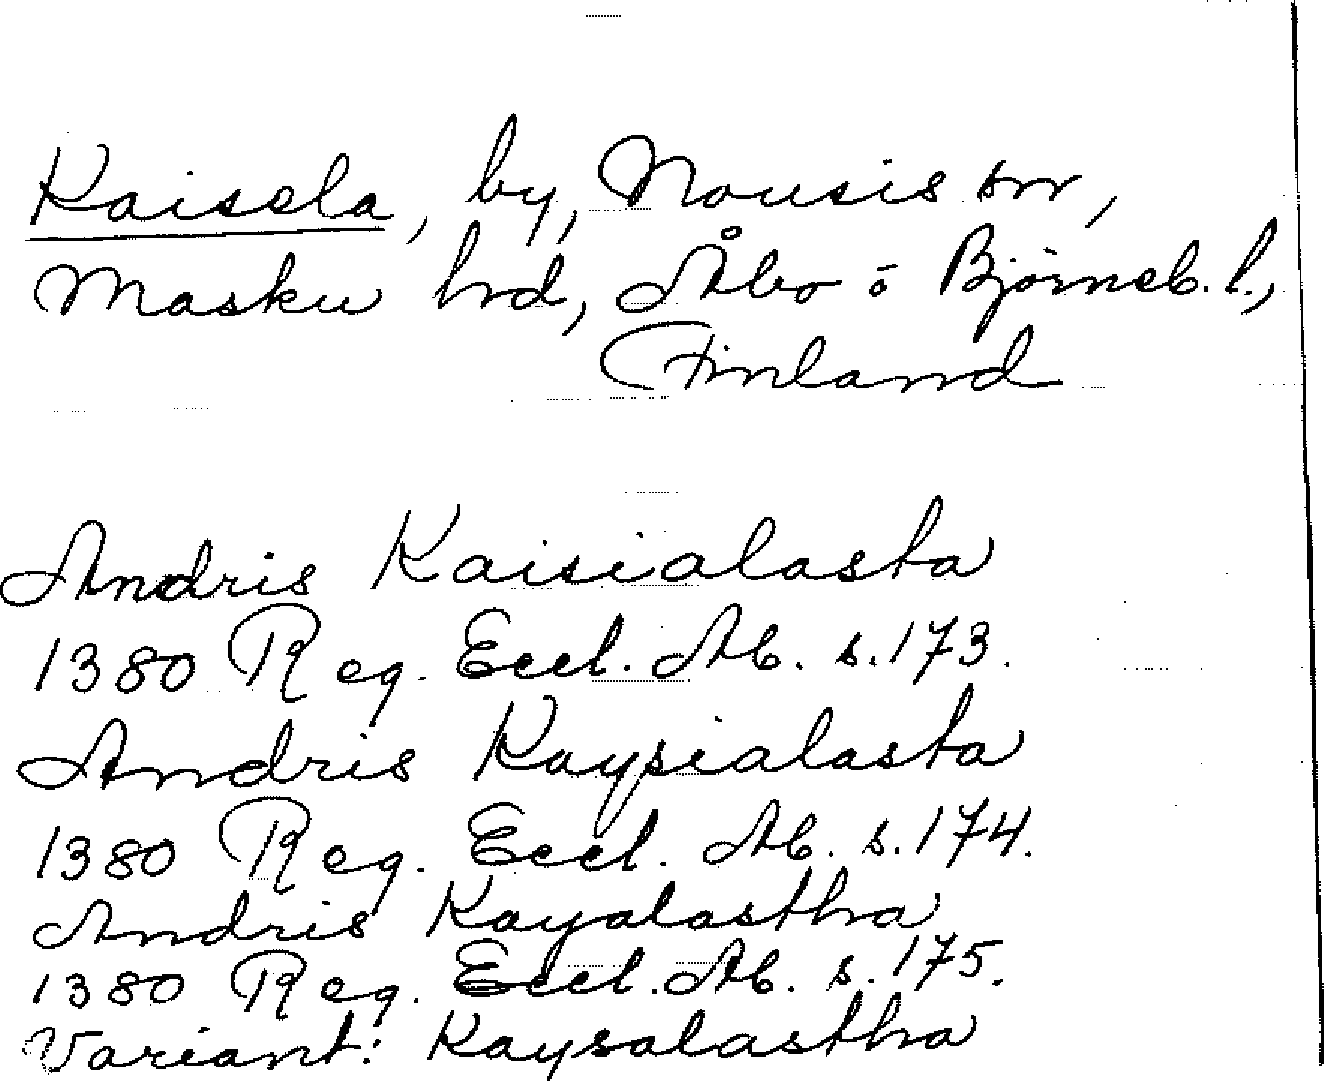 Kaisela, by, Nousis sn,
Masku hrd, Åbo ō Björneb. l.,
Finland
Andris Kaisialasta
1380 Reg. Eccl. Ab. s. 173.
Andris Kaysialasta
1380 Reg. Eccl. Ab. s. 174.
Andris Kayalastha
1380 Reg. Eccl. Ab. s. 175.
Variant: Kaysalastha